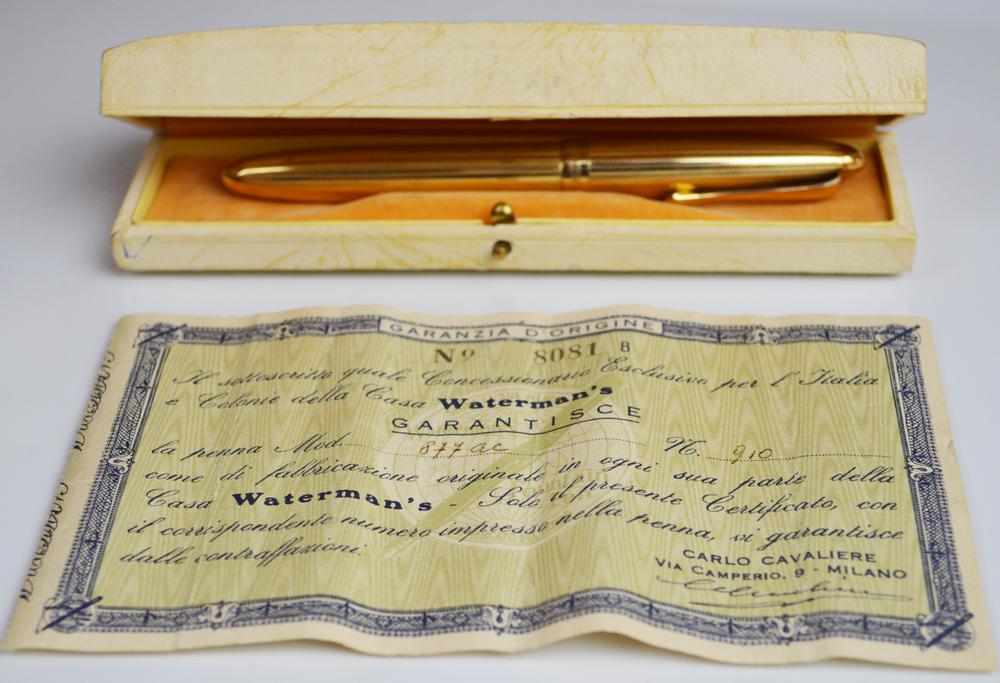 GARANZIA D'ORIGINE
Nº 8081 B
Il sottoscritto quale Concessionario Esclusivo per l'Italia
e Colonie della Casa Waterman's
GARANTISCE
la penna Mod. 877 ac N. 910
come di fabbricazione originale in ogni sua parte della
Casa Waterman's - Solo il presente Certificato, con
il corrispondente numero impresso nella penna, vi garantisce
dalle contraffazioni.
CARLO CAVALIERE
VIA CAMPERIO, 9 - MILANO